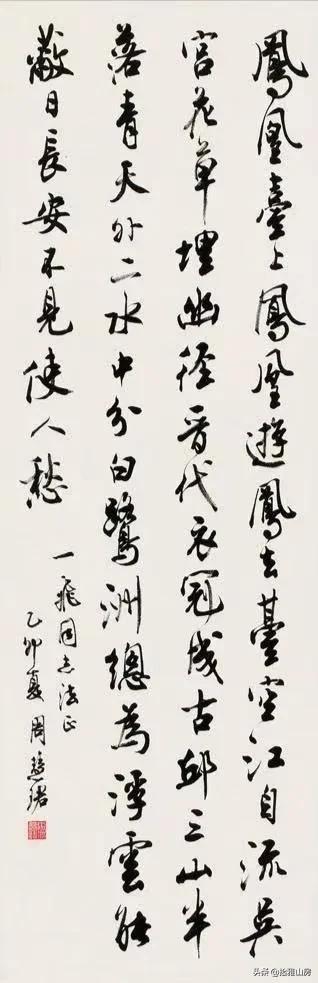 鳳凰臺上鳳凰遊鳳去臺空江自流吳
宮花草埋幽徑晉代衣冠成古邱三山半
落青天外二水中分白鷺洲總為浮雲能
蔽日長安不見使人愁
一飛同志法正
乙卯夏周慧珺
头条@拾雅山房